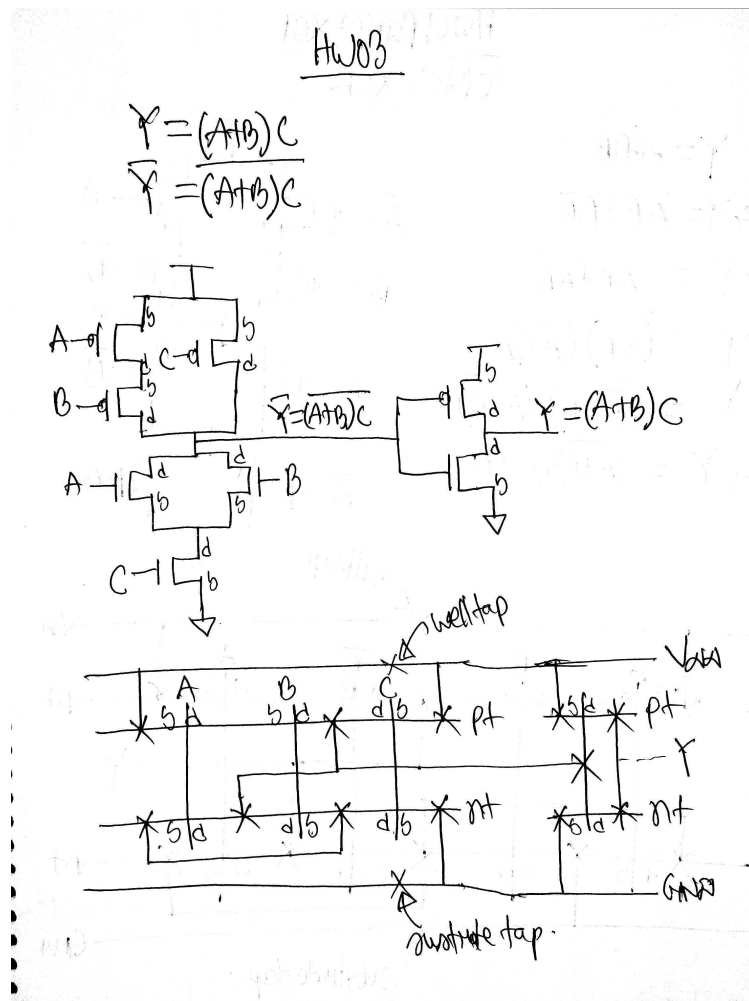 HW03
Y = (A+B)C
Y̅ = \overline{(A+B)C}
A s s
d C d
B s
d Y̅=\overline{(A+B)C} s
d Y=(A+B)C
A d d B d
s s s
C d
s
welltap
Vdd
A B C
s d s d d s pt s d pt
Y
s d d s d s nt s d nt
GND
substrate tap.